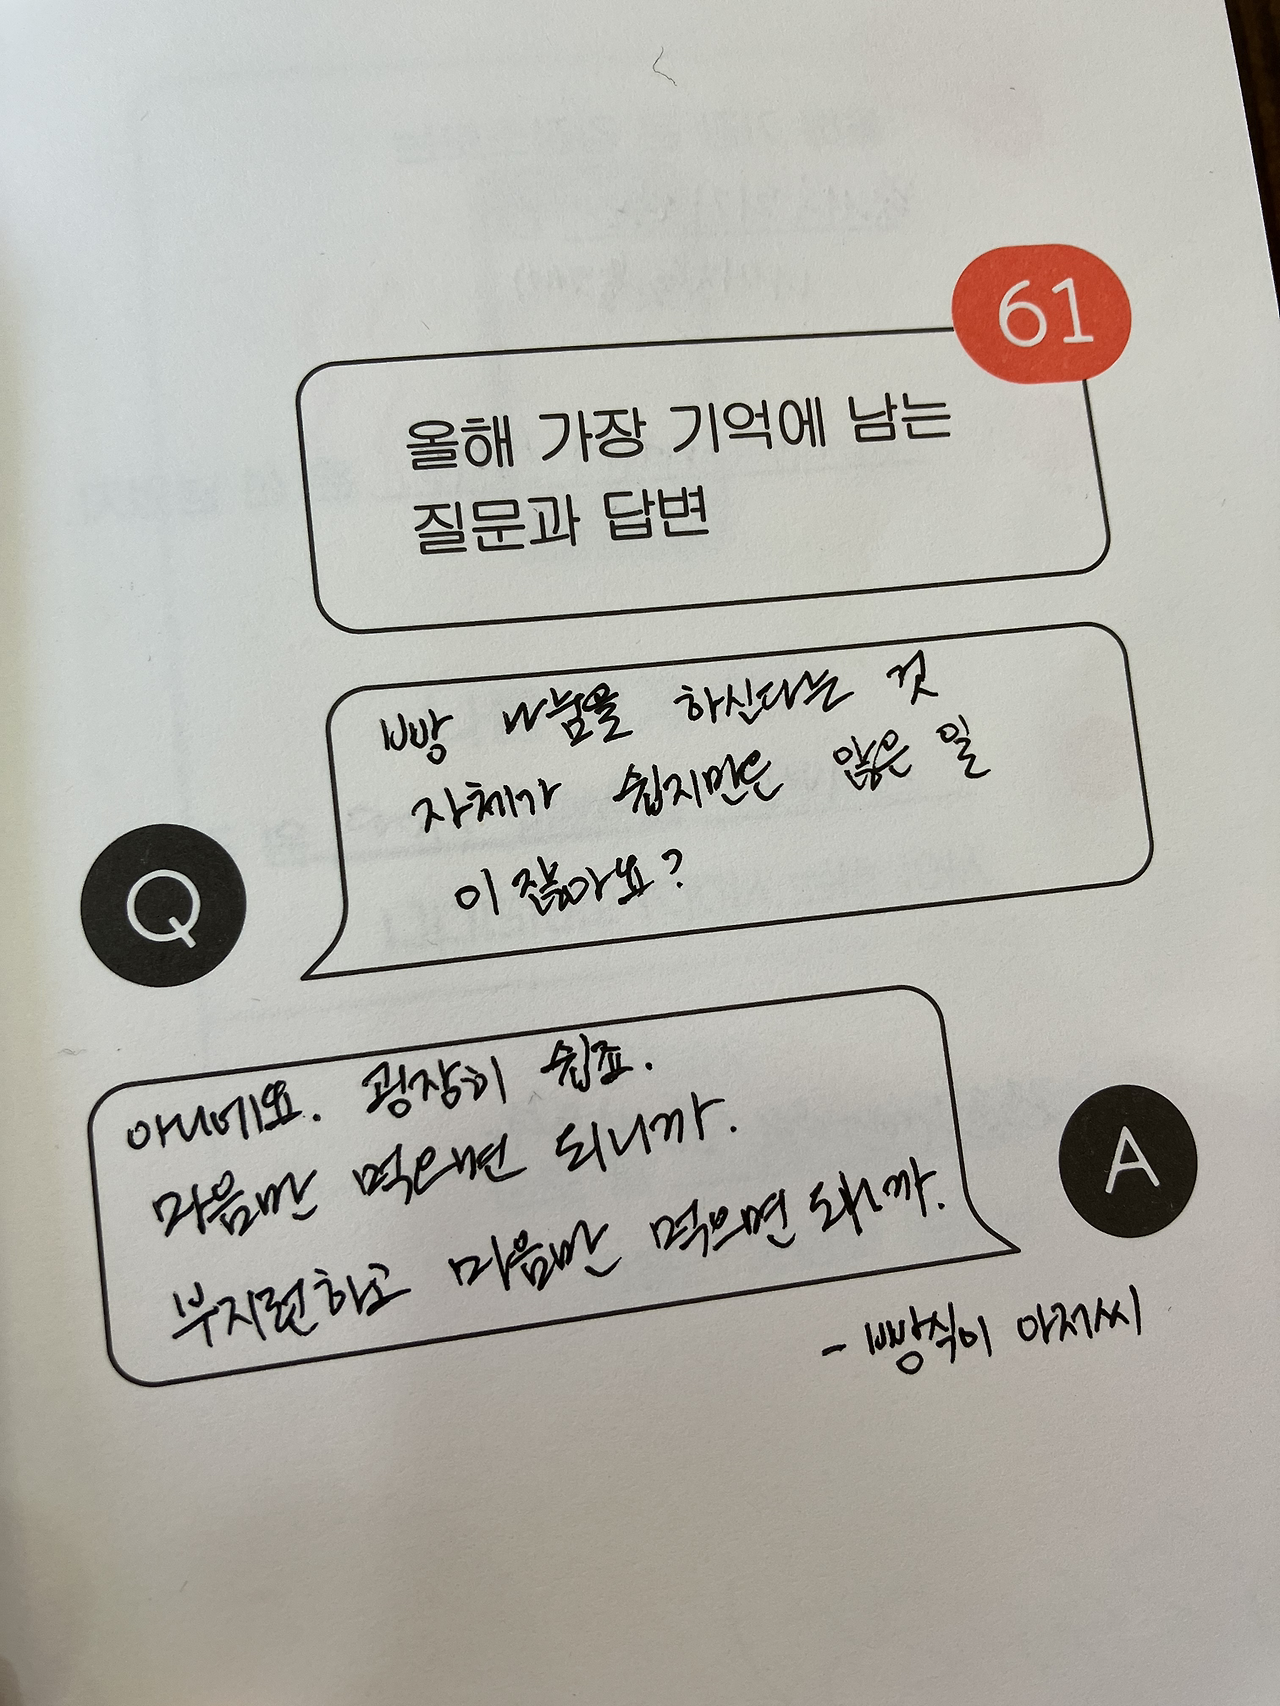 61
올해 가장 기억에 남는
질문과 답변
빵 나눔을 하신다는 것
자체가 쉽지만은 않은 일
이잖아요?
Q
아니에요. 굉장히 쉽죠.
마음만 먹으면 되니까.
부지런하고 마음만 먹으면 되니까.
A
- 빵식이 아저씨